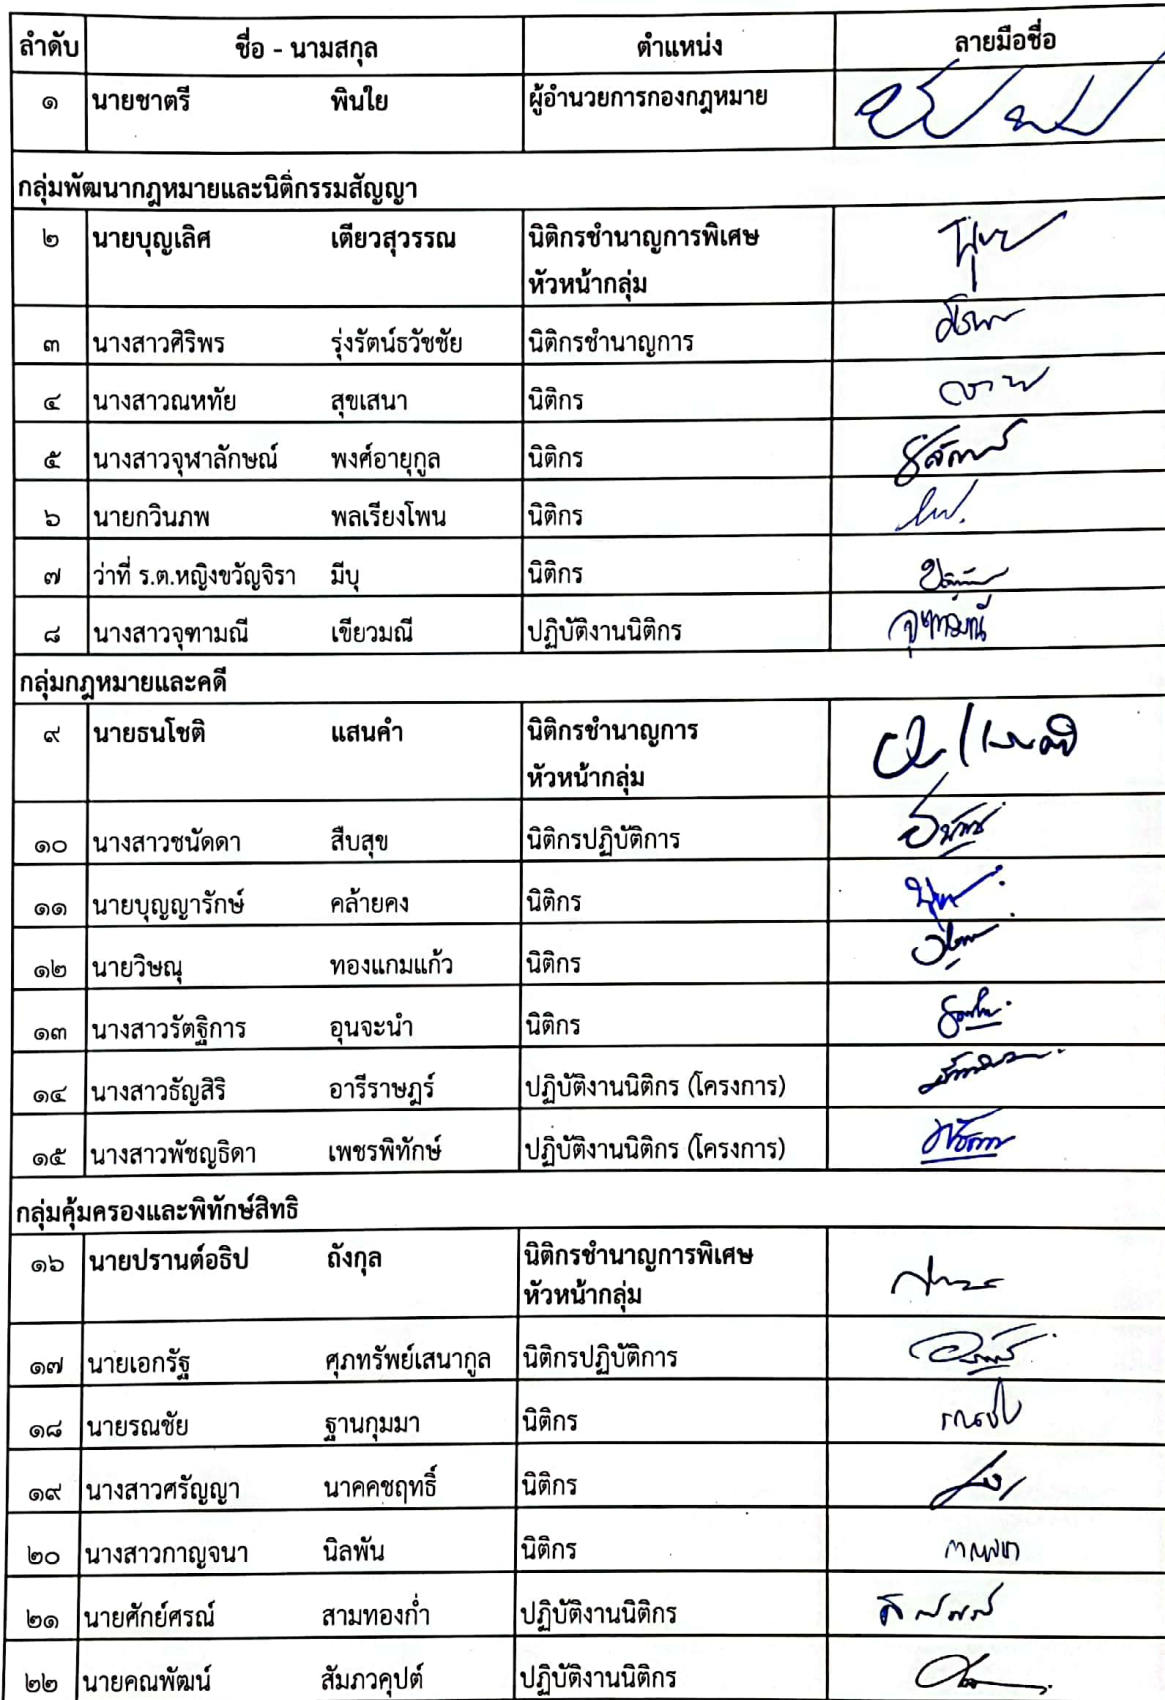 ลำดับ ชื่อ - นามสกุล ตำแหน่ง ลายมือชื่อ
๑ นายชาตรี พินใย ผู้อำนวยการกองกฎหมาย
กลุ่มพัฒนากฎหมายและนิติกรรมสัญญา
๒ นายบุญเลิศ เตียวสุวรรณ นิติกรชำนาญการพิเศษ
หัวหน้ากลุ่ม
๓ นางสาวศิริพร รุ่งรัตน์ธวัชชัย นิติกรชำนาญการ
๔ นางสาวณหทัย สุขเสนา นิติกร
๕ นางสาวจุฬาลักษณ์ พงศ์อายุกูล นิติกร
๖ นายกวินภพ พลเรียงโพน นิติกร
๗ ว่าที่ ร.ต.หญิงขวัญจิรา มีบุ นิติกร
๘ นางสาวจุฑามณี เขียวมณี ปฏิบัติงานนิติกร จุฑามณี
กลุ่มกฎหมายและคดี
๙ นายธนโชติ แสนคำ นิติกรชำนาญการ
หัวหน้ากลุ่ม
๑๐ นางสาวชนัดดา สืบสุข นิติกรปฏิบัติการ
๑๑ นายบุญญารักษ์ คล้ายคง นิติกร
๑๒ นายวิษณุ ทองแกมแก้ว นิติกร
๑๓ นางสาวรัตฐิการ อุนจะนำ นิติกร
๑๔ นางสาวธัญสิริ อารีราษฎร์ ปฏิบัติงานนิติกร (โครงการ)
๑๕ นางสาวพัชญธิดา เพชรพิทักษ์ ปฏิบัติงานนิติกร (โครงการ)
กลุ่มคุ้มครองและพิทักษ์สิทธิ
๑๖ นายปรานต์อธิป ถังกุล นิติกรชำนาญการพิเศษ
หัวหน้ากลุ่ม
๑๗ นายเอกรัฐ ศุภทรัพย์เสนากูล นิติกรปฏิบัติการ
๑๘ นายรณชัย ฐานกุมมา นิติกร รณชัย
๑๙ นางสาวศรัญญา นาคคชฤทธิ์ นิติกร
๒๐ นางสาวกาญจนา นิลพัน นิติกร กาญจนา
๒๑ นายศักย์ศรณ์ สามทองก่ำ ปฏิบัติงานนิติกร
๒๒ นายคณพัฒน์ สัมภวคุปต์ ปฏิบัติงานนิติกร